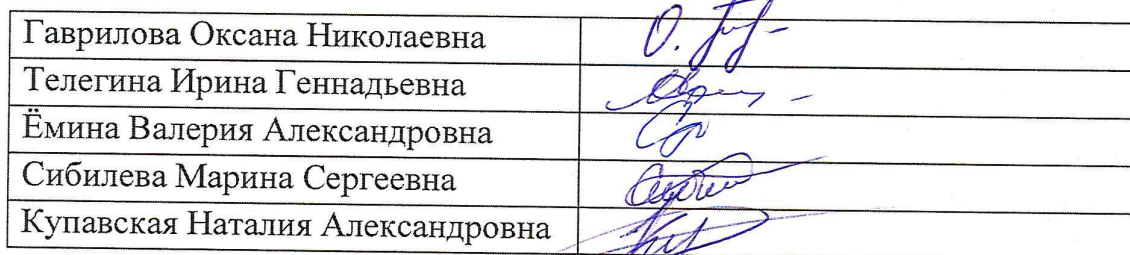 Гаврилова Оксана Николаевна
Телегина Ирина Геннадьевна
Ёмина Валерия Александровна
Сибилева Марина Сергеевна
Купавская Наталия Александровна